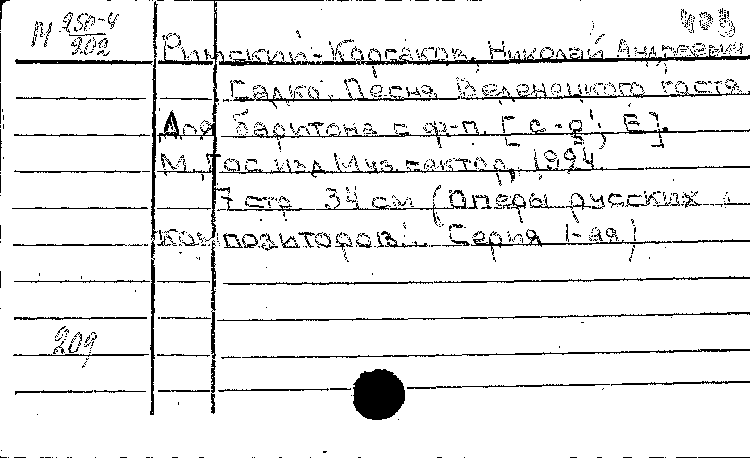 403
М 250-4
202
Римский-Корсаков, Николай Андреевич
Садко. Песня Веденецкого гостя.
Для баритона с ф-п. [c-g'; E].
М., Гос. изд. Муз. сектор, 1924.
7 стр. 34 см (Оперы русских
композиторов. Серия 1-ая)
209